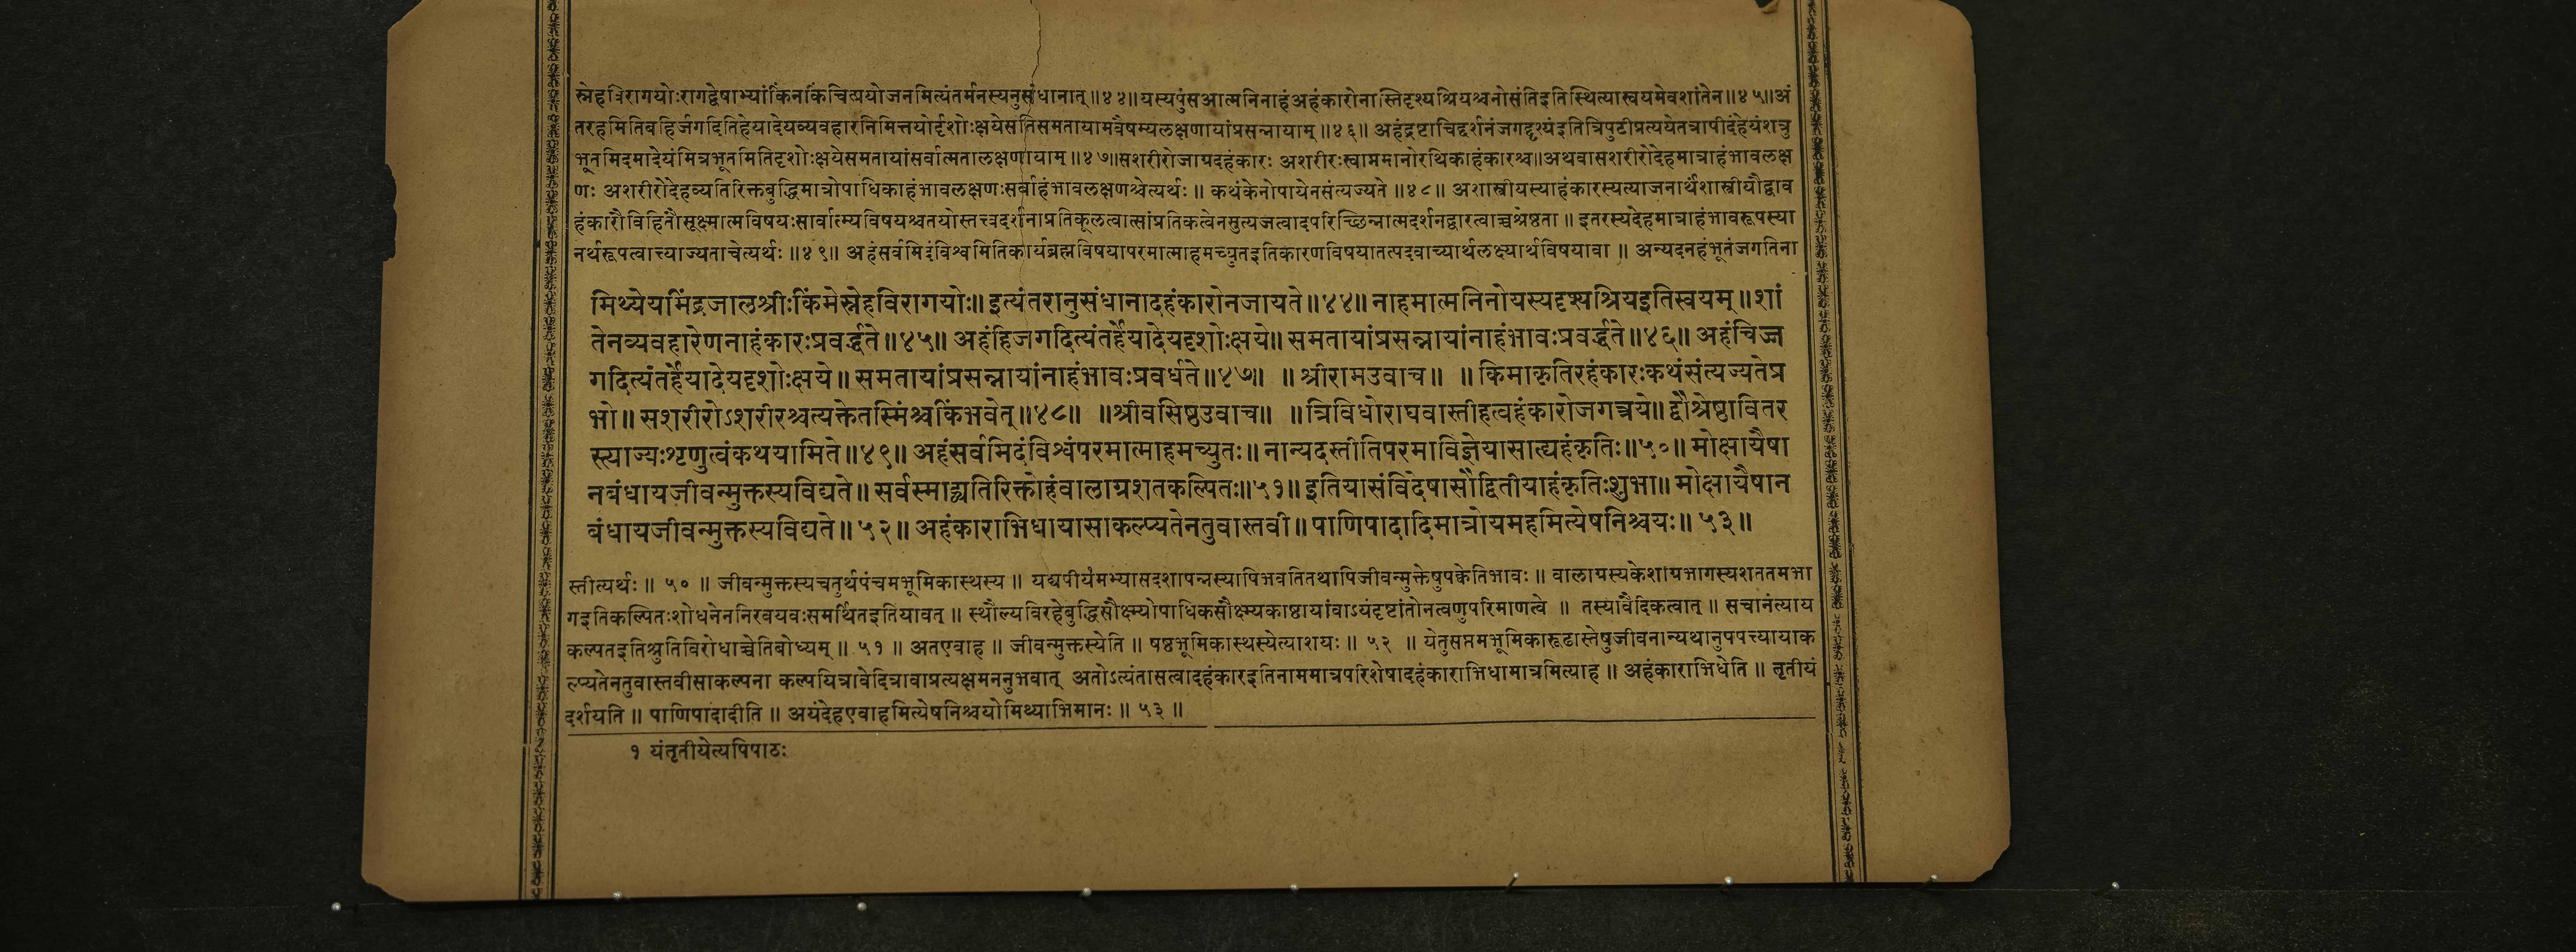 स्नेहविरागयोःरागद्वेषाभ्यांकिंनकिंचित्प्रयोजनमित्यंतर्मनस्यनुसंधानात्॥४४॥यस्यपुंसआत्मनिनाहंअहंकारोनास्तिदृश्यश्रियश्चनोसंतिइतिस्थित्यास्वयमेवशांतेन॥४५॥अं
तरहमितिबहिर्जगदितिहेयादेयव्यवहारनिमित्तयोर्दृशोःक्षयेसतिसमतायामवैषम्यलक्षणायांप्रसन्नायाम्॥४६॥ अहंद्रष्टाचिद्दर्शनंजगद्दृश्यंइतित्रिपुटीप्रत्ययेतत्रापीदंहेयंशत्रु
भूतमिदमादेयंमित्रभूतमितिदृशोःक्षयेसमतायांसर्वात्मतालक्षणायाम्॥४७॥सशरीरोजाग्रदहंकारः अशरीरःस्वाप्नमानोरथिकाहंकारश्च॥अथवासशरीरोदेहमात्राहंभावलक्ष
णः अशरीरोदेहव्यतिरिक्तबुद्धिमात्रोपाधिकाहंभावलक्षणःसर्वाहंभावलक्षणश्चेत्यर्थः॥ कथंकेनोपायेनसंत्यज्यते॥४८॥ अशास्त्रीयस्याहंकारस्यत्याजनार्थंशास्त्रीयौद्वाव
हंकारौविहितौसूक्ष्मात्मविषयःसार्वात्म्यविषयश्चतयोस्तत्त्वदर्शनाप्रतिकूलत्वात्सांप्रतिकत्वेनसुत्यजत्वादपरिच्छिन्नात्मदर्शनद्वारत्वाच्चश्रेष्ठता॥ इतरस्यदेहमात्राहंभावरूपस्या
नर्थरूपत्वात्त्याज्यताचेत्यर्थः॥४९॥ अहंसर्वमिदंविश्वमितिकार्यब्रह्मविषयापरमात्माहमच्युतइतिकारणविषयातत्पदवाच्यार्थलक्ष्यार्थविषयावा॥ अन्यदनहंभूतंजगतिना
मिथ्येयमिंद्रजालश्रीःकिंमेस्नेहविरागयोः॥ इत्यंतरानुसंधानादहंकारोनजायते॥४४॥ नाहमात्मनिनोयस्यदृश्यश्रियइतिस्वयम्॥शां
तेनव्यवहारेणनाहंकारःप्रवर्द्धते॥४५॥ अहंहिजगदित्यंतर्हेयादेयदृशोःक्षये॥ समतायांप्रसन्नायांनाहंभावःप्रवर्द्धते॥४६॥ अहंचिज्ज
गदित्यंतर्हेयादेयदृशोःक्षये॥ समतायांप्रसन्नायांनाहंभावःप्रवर्धते॥४७॥ ॥श्रीरामउवाच॥ ॥किमाकृतिरहंकारःकथंसंत्यज्यतेप्र
भो॥ सशरीरोऽशरीरश्चत्यक्तेतस्मिंश्चकिंभवेत्॥४८॥ ॥श्रीवसिष्ठउवाच॥ ॥त्रिविधोराघवास्तीहत्वहंकारोजगत्रये॥ द्वौश्रेष्ठावितर
स्त्याज्यःशृणुत्वंकथयामिते॥४९॥ अहंसर्वमिदंविश्वंपरमात्माहमच्युतः॥ नान्यदस्तीतिपरमाविज्ञेयासात्द्यहंकृतिः॥५०॥ मोक्षायैषा
नबंधायजीवन्मुक्तस्यविद्यते॥ सर्वस्माद्व्यतिरिक्तोहंवालाग्रशतकल्पितः॥५१॥ इतियासंविदेषासौद्वितीयाहंकृतिःशुभा॥ मोक्षायैषान
बंधायजीवन्मुक्तस्यविद्यते॥५२॥ अहंकाराभिधायासाकल्प्यतेनतुवास्तवी॥ पाणिपादादिमात्रोयमहमित्येषनिश्चयः॥५३॥
स्तीत्यर्थः॥ ५०॥ जीवन्मुक्तस्यचतुर्थपंचमभूमिकास्थस्य॥ यद्यपीयमभ्यासदशापन्नस्यापिभवतितथापिजीवन्मुक्तेषुपक्वेतिभावः॥ वालाग्रस्यकेशाग्रभागस्यशततमभा
गइतिकल्पितःशोधनेननिरवयवःसमर्थितइतियावत्॥ स्थौल्यविरहेबुद्धिसौक्ष्म्योपाधिकसौक्ष्म्यकाष्ठायांवाऽयंदृष्टांतोनत्वणुपरिमाणत्वे॥ तस्यावैदिकत्वात्॥ सचानंत्याय
कल्पतइतिश्रुतिविरोधाच्चेतिबोध्यम्॥ ५१॥ अतएवाह॥ जीवन्मुक्तस्येति॥ षष्ठभूमिकास्थस्येत्याशयः॥ ५२॥ येतुसप्तमभूमिकारूढास्तेषुजीवनान्यथानुपपत्त्यायाक
ल्प्यतेनतुवास्तवीसाकल्पना कल्पयित्रावेदित्रावाप्रत्यक्षमननुभवात् अतोऽत्यंतासत्वादहंकारइतिनाममात्रपरिशेषादहंकाराभिधामात्रमित्याह॥ अहंकाराभिधेति॥ तृतीयं
दर्शयति॥ पाणिपादादीति॥ अयंदेहएवाहमित्येषनिश्चयोमिथ्याभिमानः॥ ५३॥
१ यंतृतीयेत्यपिपाठः